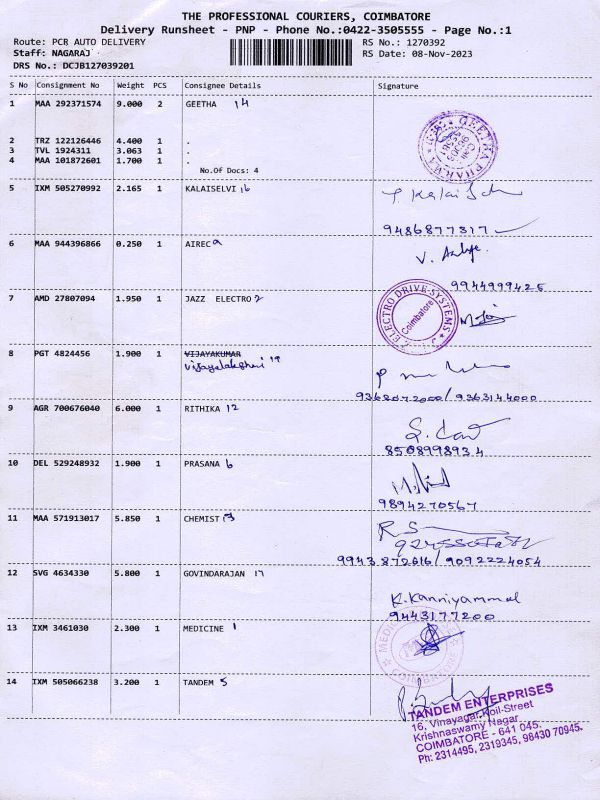 THE PROFESSIONAL COURIERS, COIMBATORE
Delivery Runsheet - PNP - Phone No.:0422-3505555 - Page No.:1
Route: PCR AUTO DELIVERY RS No.: 1270392
Staff: NAGARAJ RS Date: 08-Nov-2023
DRS No.: DCJB127039201
S No Consignment No Weight PCS Consignee Details Signature
1 MAA 292371574 9.000 2 GEETHA 14
GEETHA PHARMA
2 TRZ 122126446 4.400 1 .
3 TVL 1924311 3.063 1 .
4 MAA 101872601 1.700 1 .
No.Of Docs: 4
5 IXM 505270992 2.165 1 KALAISELVI 16
9486877317
6 MAA 944396866 0.250 1 AIREC 9
9944999425
7 AMD 27807094 1.950 1 JAZZ ELECTRO 2
ELECTRO DRIVE SYSTEMS
Coimbatore
8 PGT 4824456 1.900 1 VIJAYAKUMAR
Vijayalakshmi 19
9 AGR 700676040 6.000 1 RITHIKA 12
8508998934
10 DEL 529248932 1.900 1 PRASANA 6
9894270567
11 MAA 571913017 5.850 1 CHEMIST 3
9943872616/9092224054
12 SVG 4634330 5.800 1 GOVINDARAJAN 17
K. Kanniyammal
9443177200
13 IXM 3461030 2.300 1 MEDICINE 1
COIMBATORE
14 IXM 505066238 3.200 1 TANDEM 5
TANDEM ENTERPRISES
16, Vinayagar Koil-Street
Krishnaswamy Nagar
COIMBATORE - 641 045.
Ph: 2314495, 2319345, 98430 70945.